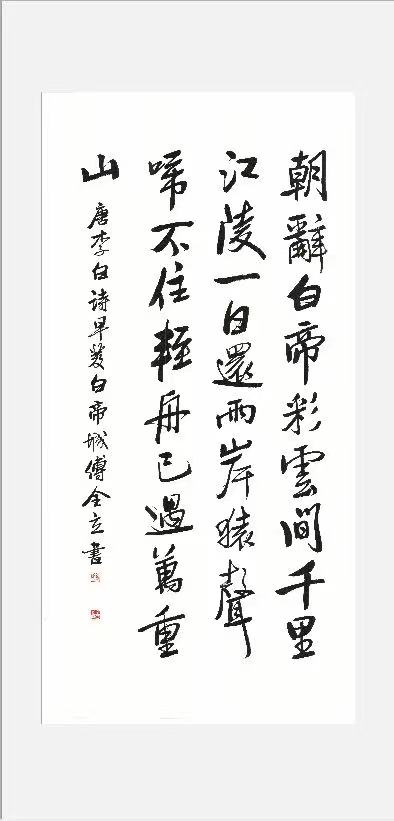 朝辭白帝彩雲間千里
江陵一日還兩岸猿聲
啼不住輕舟已過萬重
山
唐李白詩早發白帝城傅全立書